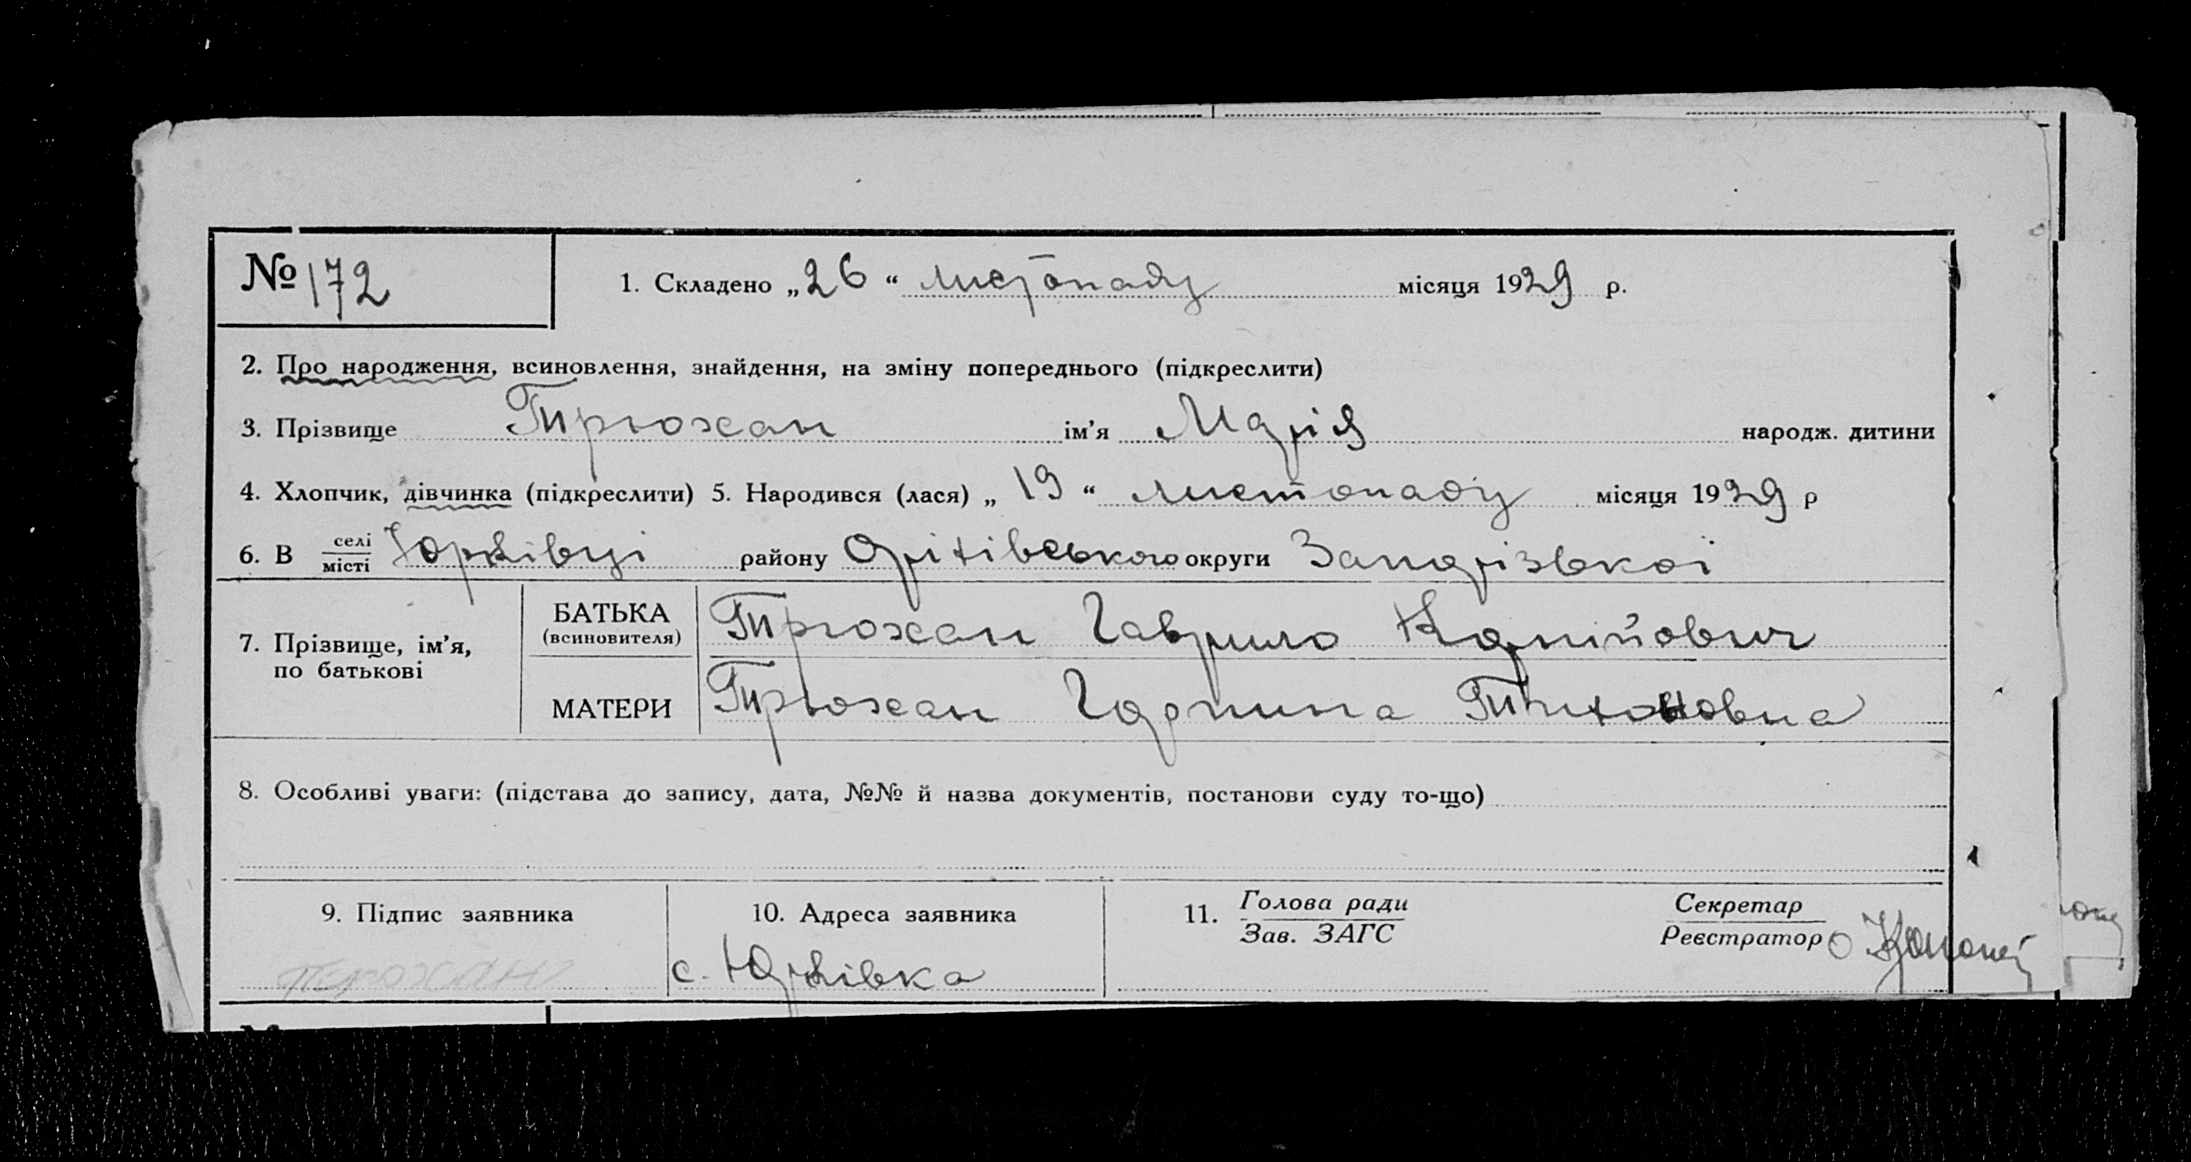 № 172
1. Складено „26“ листопаду місяця 1929 р.
2. Про народження, всиновлення, знайдення, на зміну попереднього (підкреслити)
3. Прізвище Трюхан ім’я Марія народж. дитини
4. Хлопчик, дівчинка (підкреслити) 5. Народився (лася) „19“ листопаду місяця 1929 р
6. В селі/місті Юрківці району Оріхівського округи Запорізької
7. Прізвище, ім’я, по батькові
БАТЬКА (всиновителя) Трюхан Гаврило
МАТЕРИ Трюхан Горпина Тихоновна
8. Особливі уваги: (підстава до запису, дата, №№ й назва документів, постанови суду то-що)
9. Підпис заявника
Трюхан
10. Адреса заявника
с. Юрківка
11. Голова ради
Зав. ЗАГС
Секретар
Реєстратор